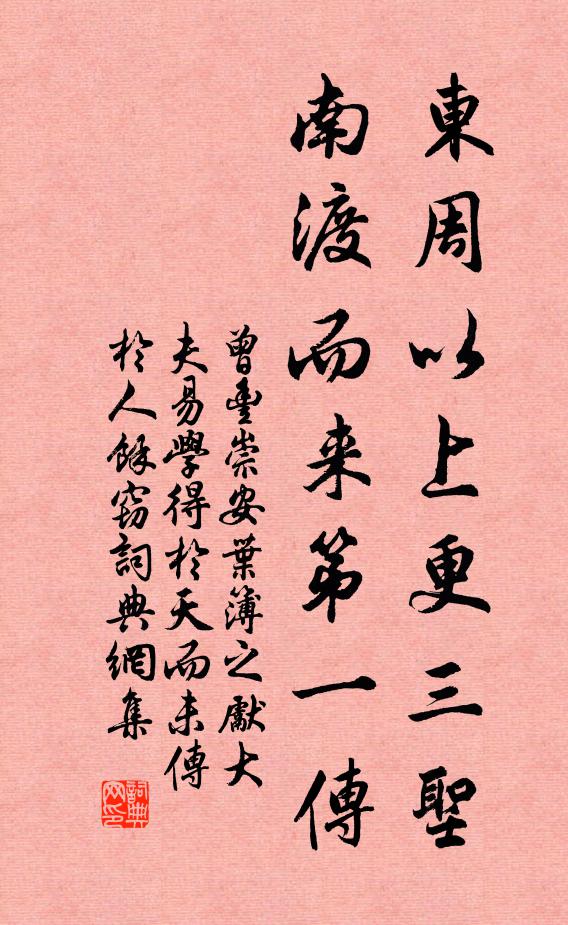 東周以上更三聖
南渡而来第一傳
曾豐崇安葉簿之獻大
夫易學得於天而未傳
於人餘竊詞典網集
詞典网印